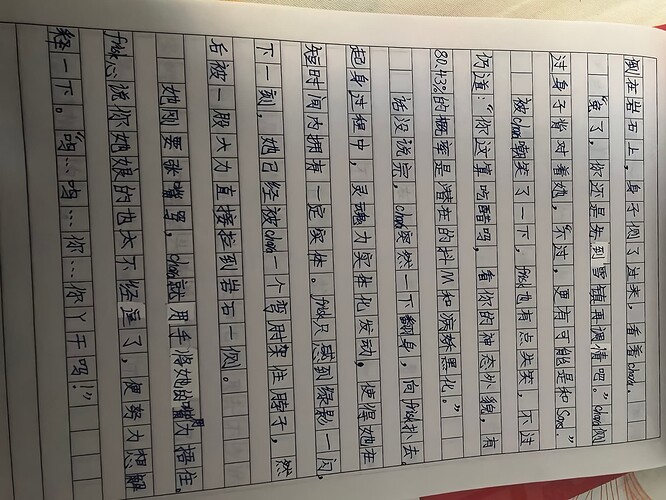 倒在岩石上，身子侧了过来，看着chara.
"算了，你还是先到雪镇再调情吧。"chara侧
过身子背对着她，"不过，更有可能是和Sans."
被chara嘲笑了一下，frisk也有点失笑，不过
仍道："你这算吃醋吗，看你的神态外貌，有
80.43%的概率是潜在的抖M和病娇黑化。"
话没说完，chara突然一下翻身，向frisk扑去。
起身过程中，灵魂力实体化发动，使得她在
短时间内拥有一定实体。frisk只感到绿影一闪，
下一刻，她已经被chara一个弯肘架住脖子，然
后被一股大力直接拉到岩石一侧。
她刚要张嘴骂，chara就用手将她的嘴捂住。
frisk心说你她娘的也太不经逗了，便努力想解
释一下。"呜…呜…你…你丫干吗！"